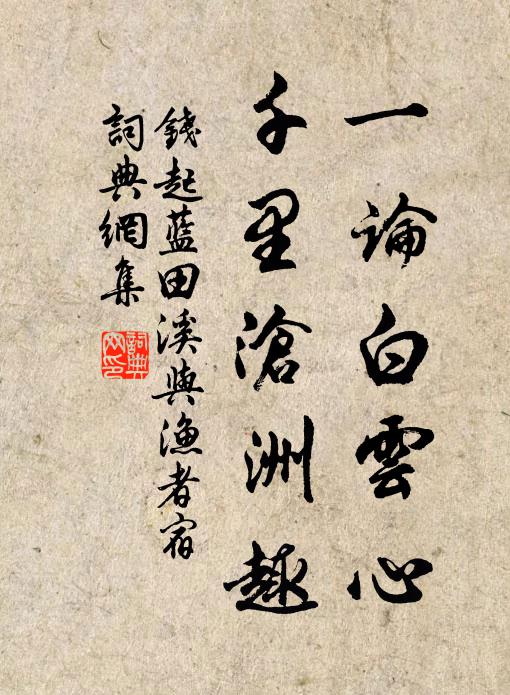 一論白雲心
千里滄洲趣
錢起藍田溪與漁者宿
詞典網集
詞典網印